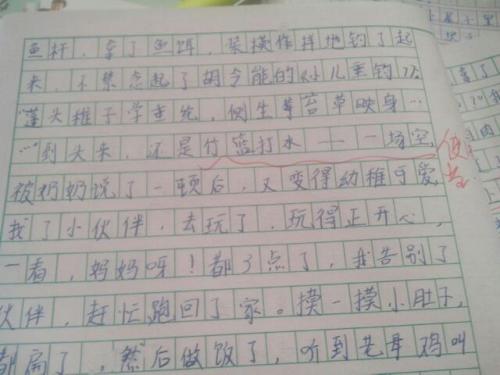 鱼杆，拿了鱼饵，装模作样地钓了起
来，不禁念起了胡令能的《小儿垂钓》
"蓬头稚子学垂纶，侧坐莓苔草映身…
…"到头来，还是竹蓝打水——一场空
被奶奶说了一顿后，又变得幼稚可爱
找了小伙伴，去玩了，玩得正开心，
一看，妈妈呀！都3点了，我告别了
伙伴，赶忙跑回了家。摸一摸小肚子，
都扁了。然后做饭了，听到老母鸡叫